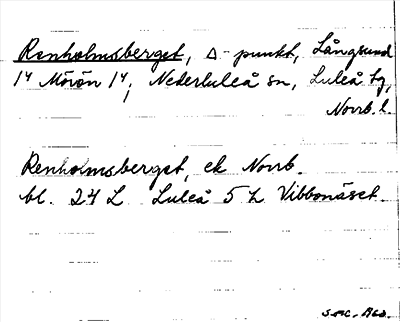 Renholmsberget, Δ-punkt, Långsund
1⁴ Mörön 1⁴, Nederluleå sn, Luleå tg,
Norrb. l.
Renholmsberget, ek Norrb.
bl. 24 L Luleå 5 h Vibbonäset.